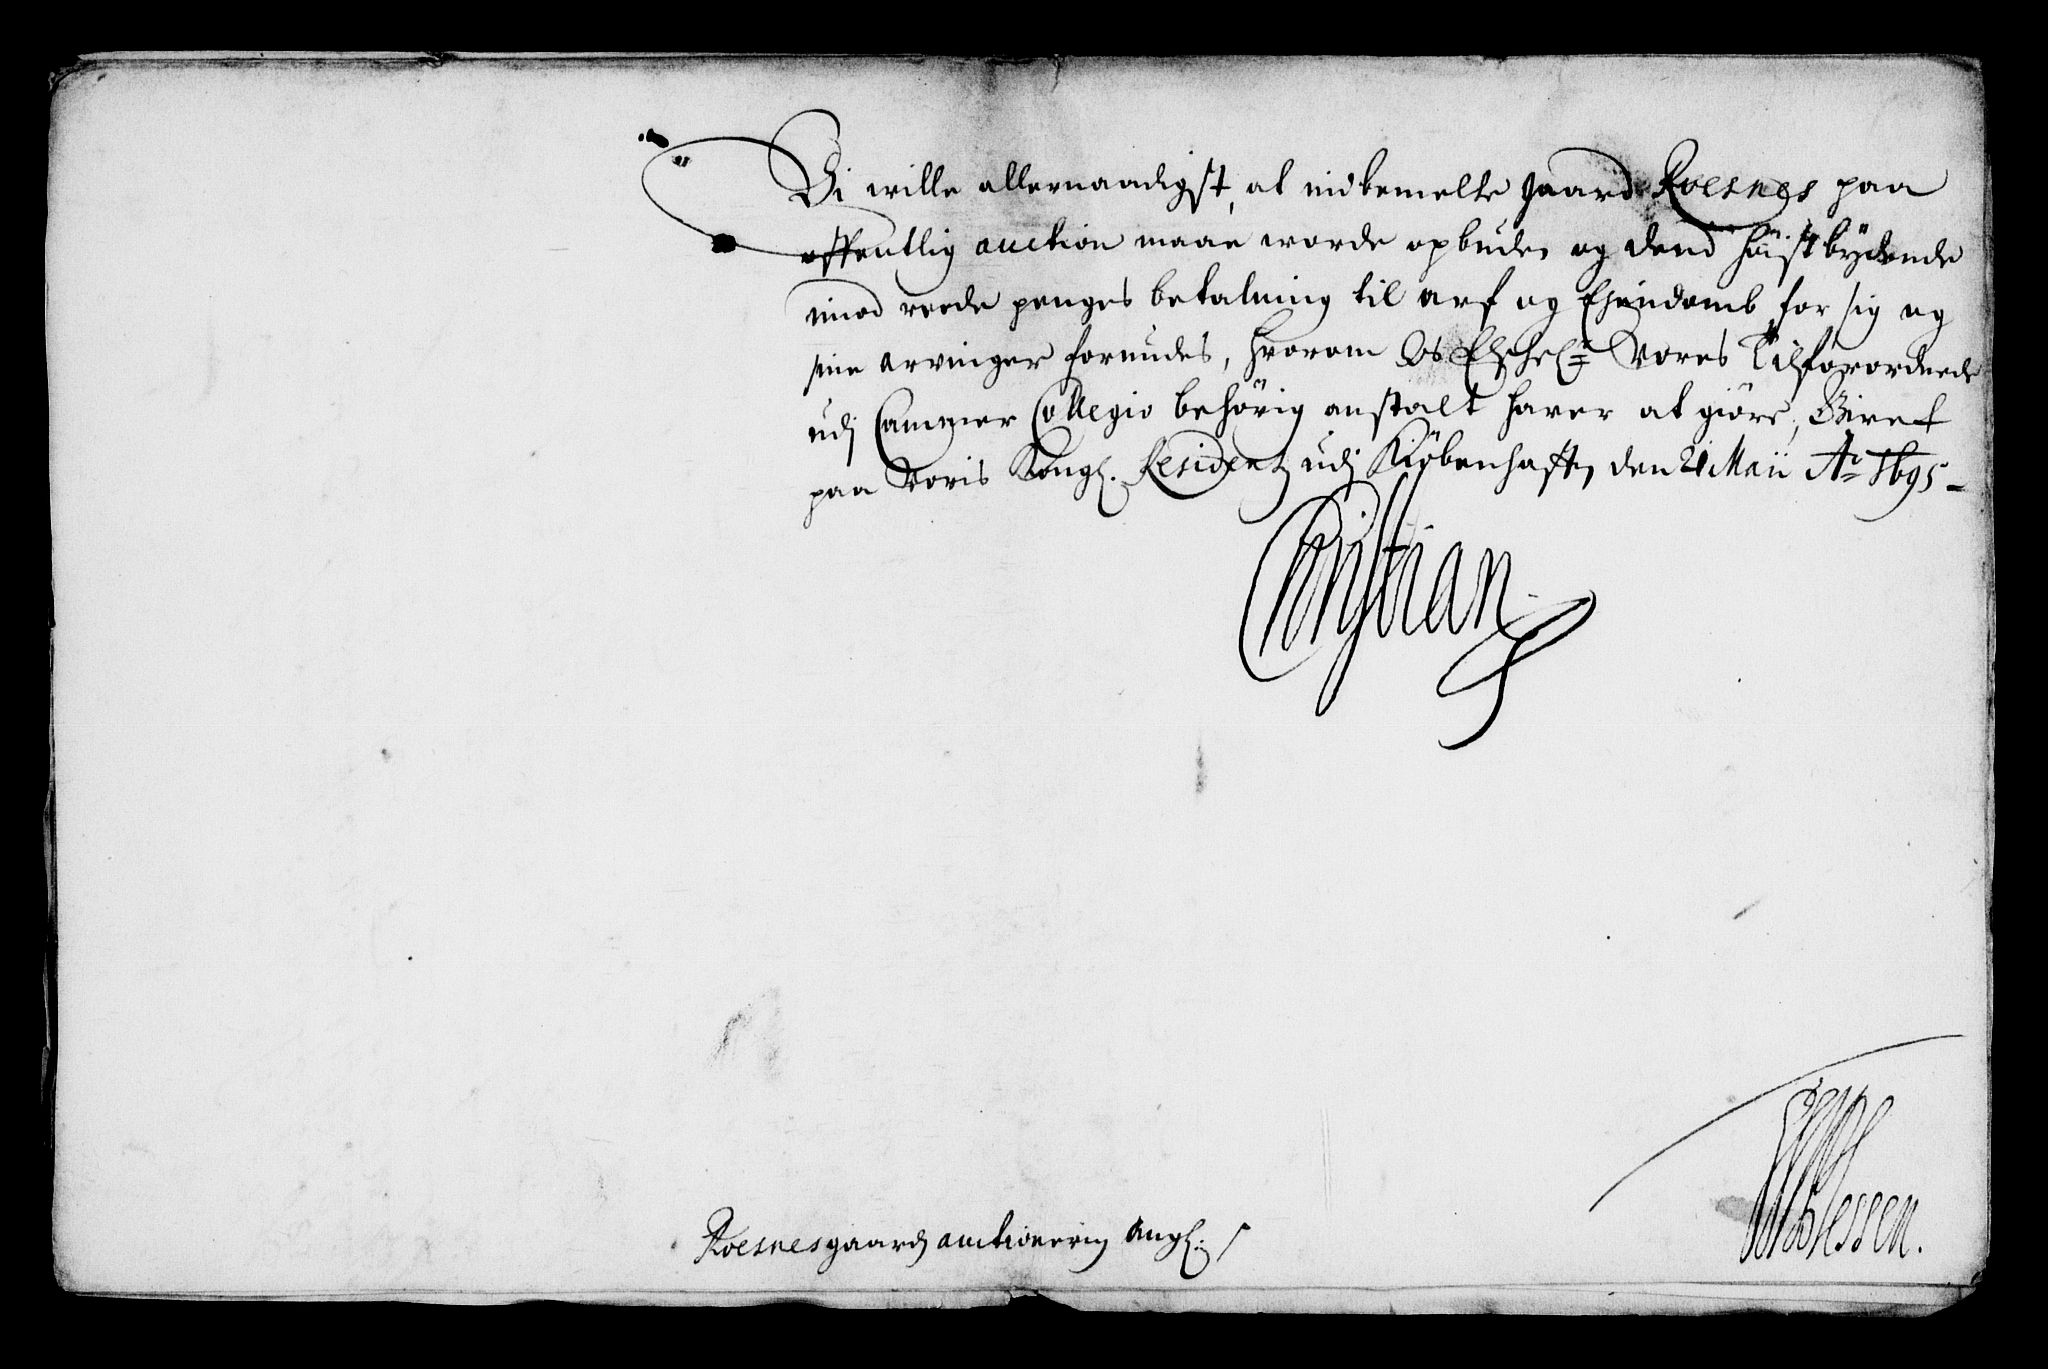 Vi wille allernaadigst, at indbemelte gaard Roesnes paa
offentlig auction maae worde opbuden og dend høist bydende
imod reede penges betalning til arf og Eiendomb for sig og
sine arvinger forundes, hvorom Vores Tilforordnede
udj Cammer Collegio behörig anstalt haver at giöre, Giret
paa Voris Kongl. Residentz udj Kiöbenhafn, den 21 Maii Ao 1695 -
Christian
Roesnesgaards auctionering angl: